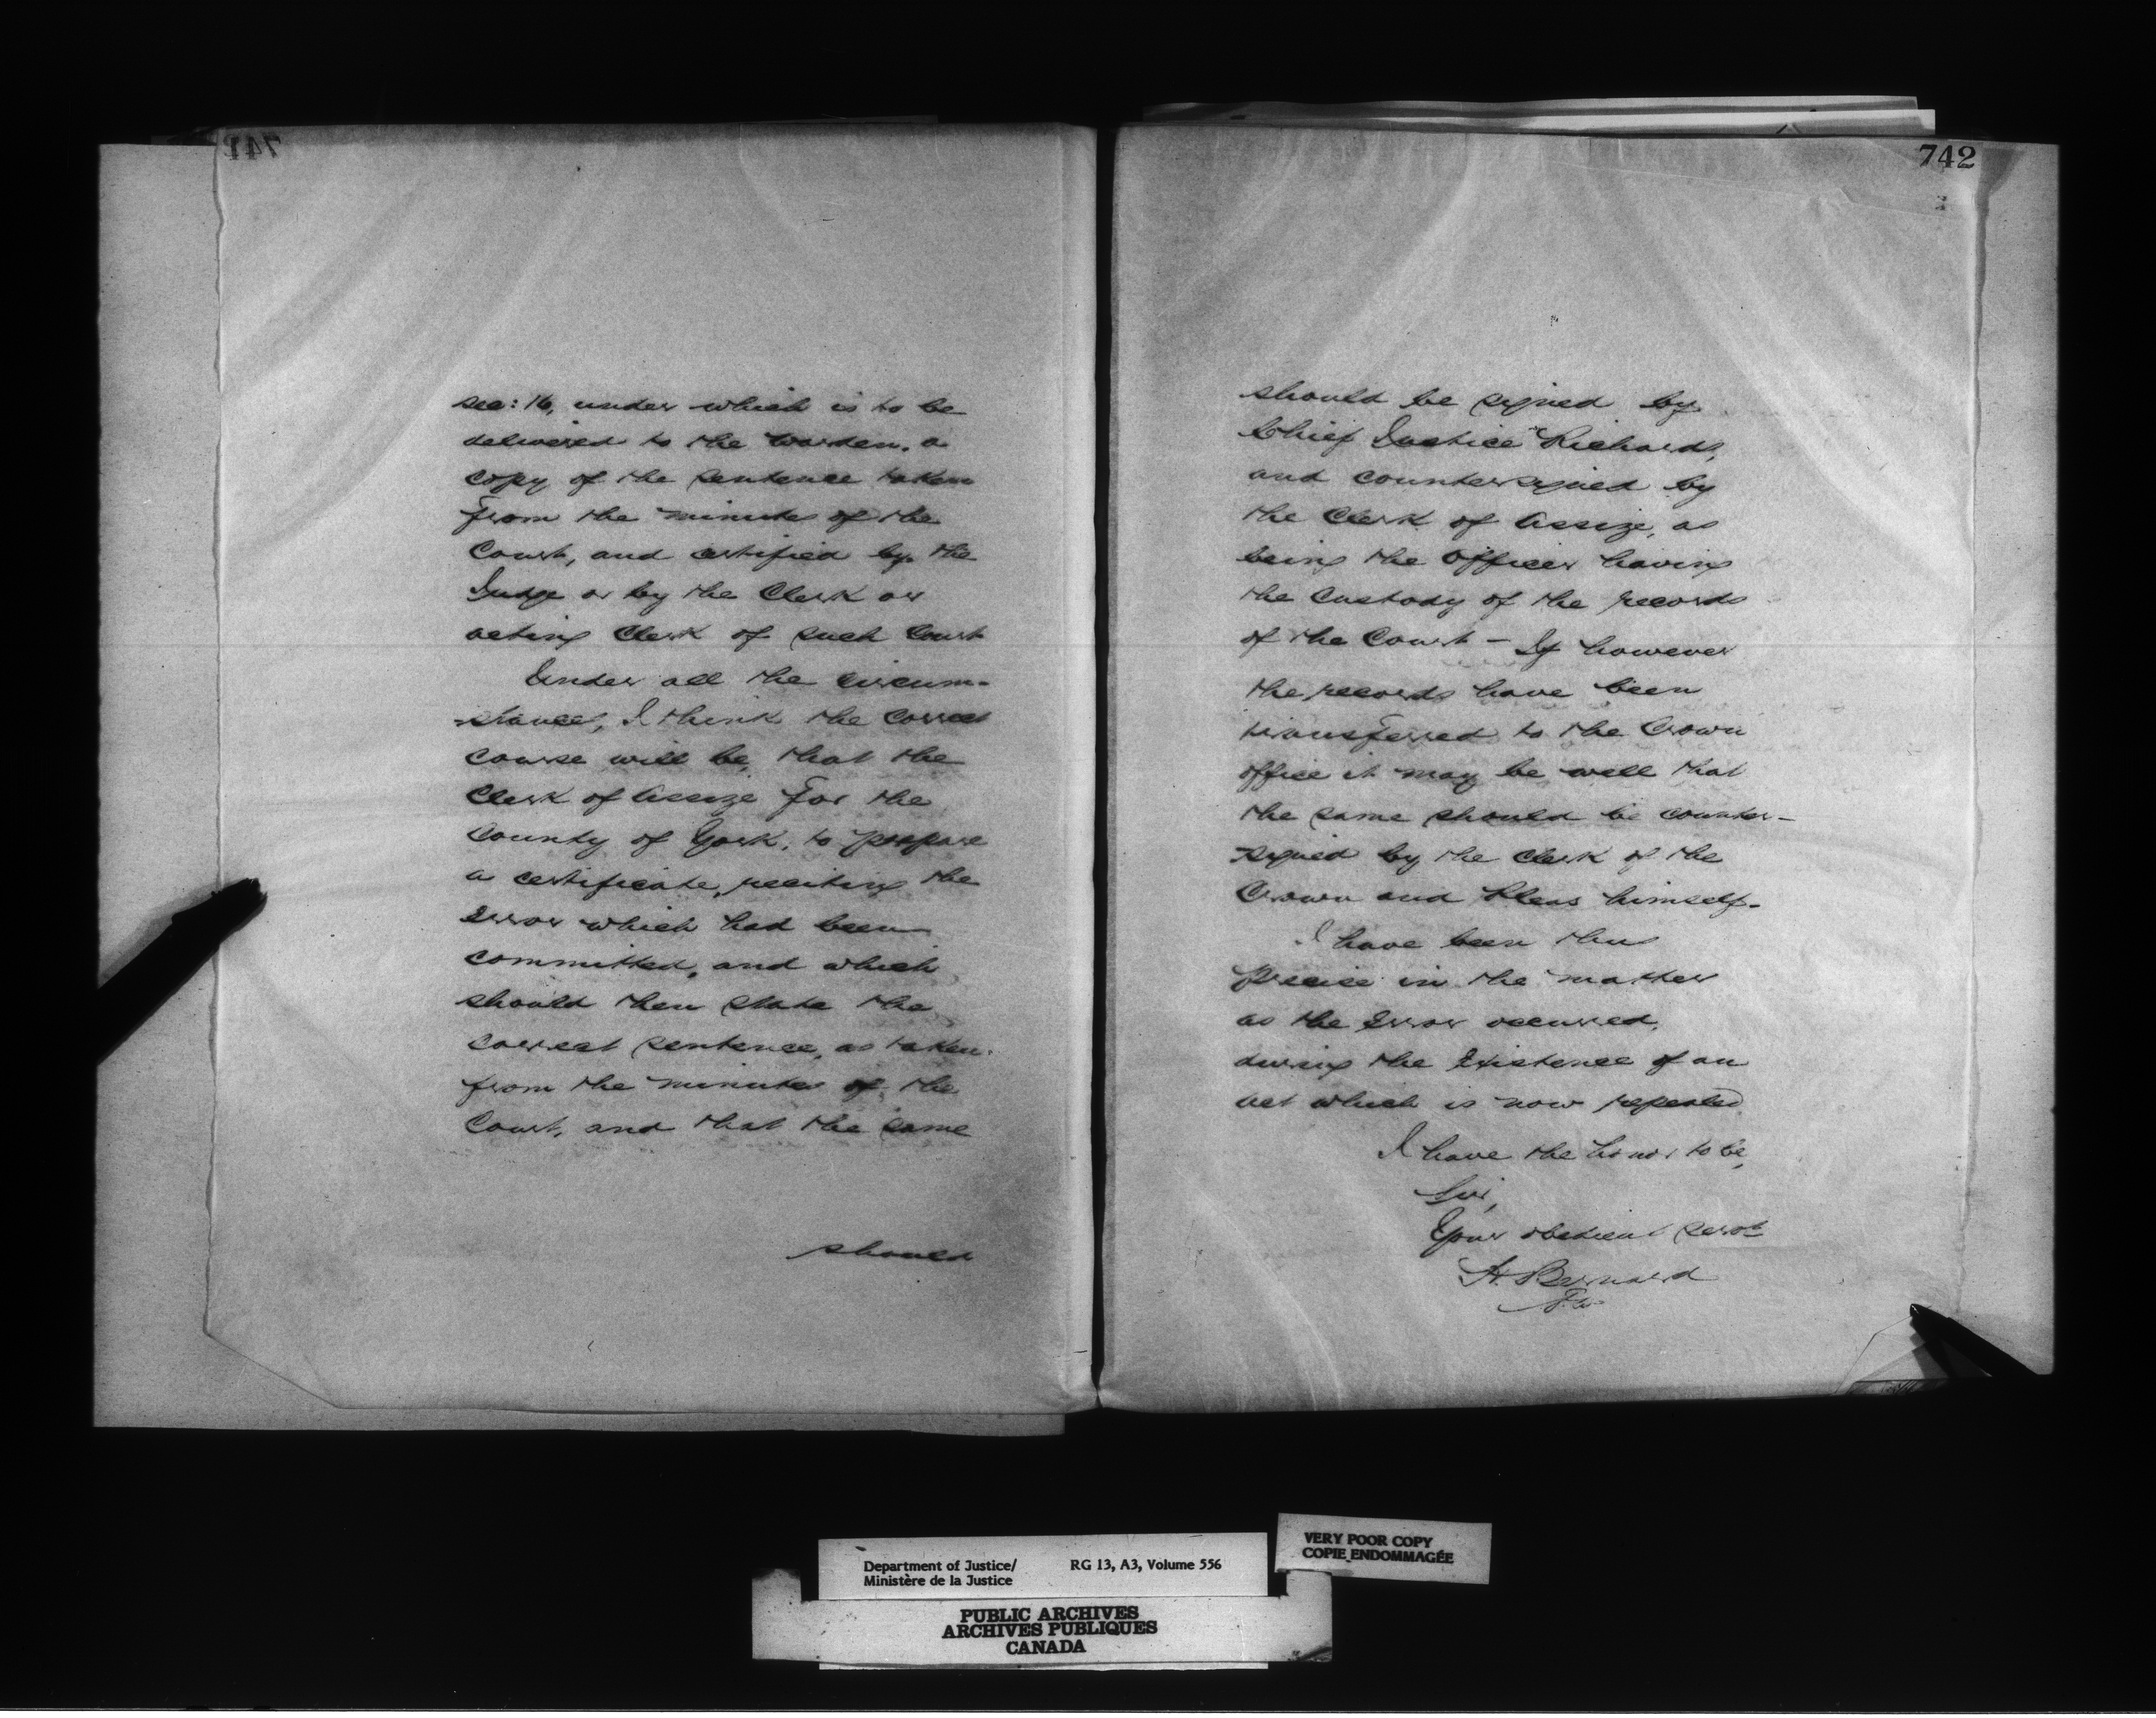 741
sec: 16, under which is to be
delivered to the Warden, a
copy of the sentence taken
from the minutes of the
Court, and certified by the
Judge or by the Clerk or
acting Clerk of such Court
Under all the circum-
stances, I think the correct
course will be, that the
Clerk of Assize for the
County of York, to prepare
a certificate, reciting the
Error which had been
committed, and which
should then state the
correct sentence, as taken
from the minutes of the
Court, and that the same
should
742
should be signed by
Chief Justice Richards,
and countersigned by
the Clerk of Assize, as
being the Officer having
the Custody of the records
of the Court - If however
the records have been
transferred to the Crown
office it may be well that
the same should be counter-
signed by the Clerk of the
Crown and Pleas himself.
I have been thus
precise in the matter
as the Error occurred,
during the Existence of an
act which is now repealed
I have the honor to be,
Sir,
Your obedient servt
H. Bernard
Department of Justice/
Ministère de la Justice
RG 13, A3, Volume 556
VERY POOR COPY
COPIE ENDOMMAGÉE
PUBLIC ARCHIVES
ARCHIVES PUBLIQUES
CANADA